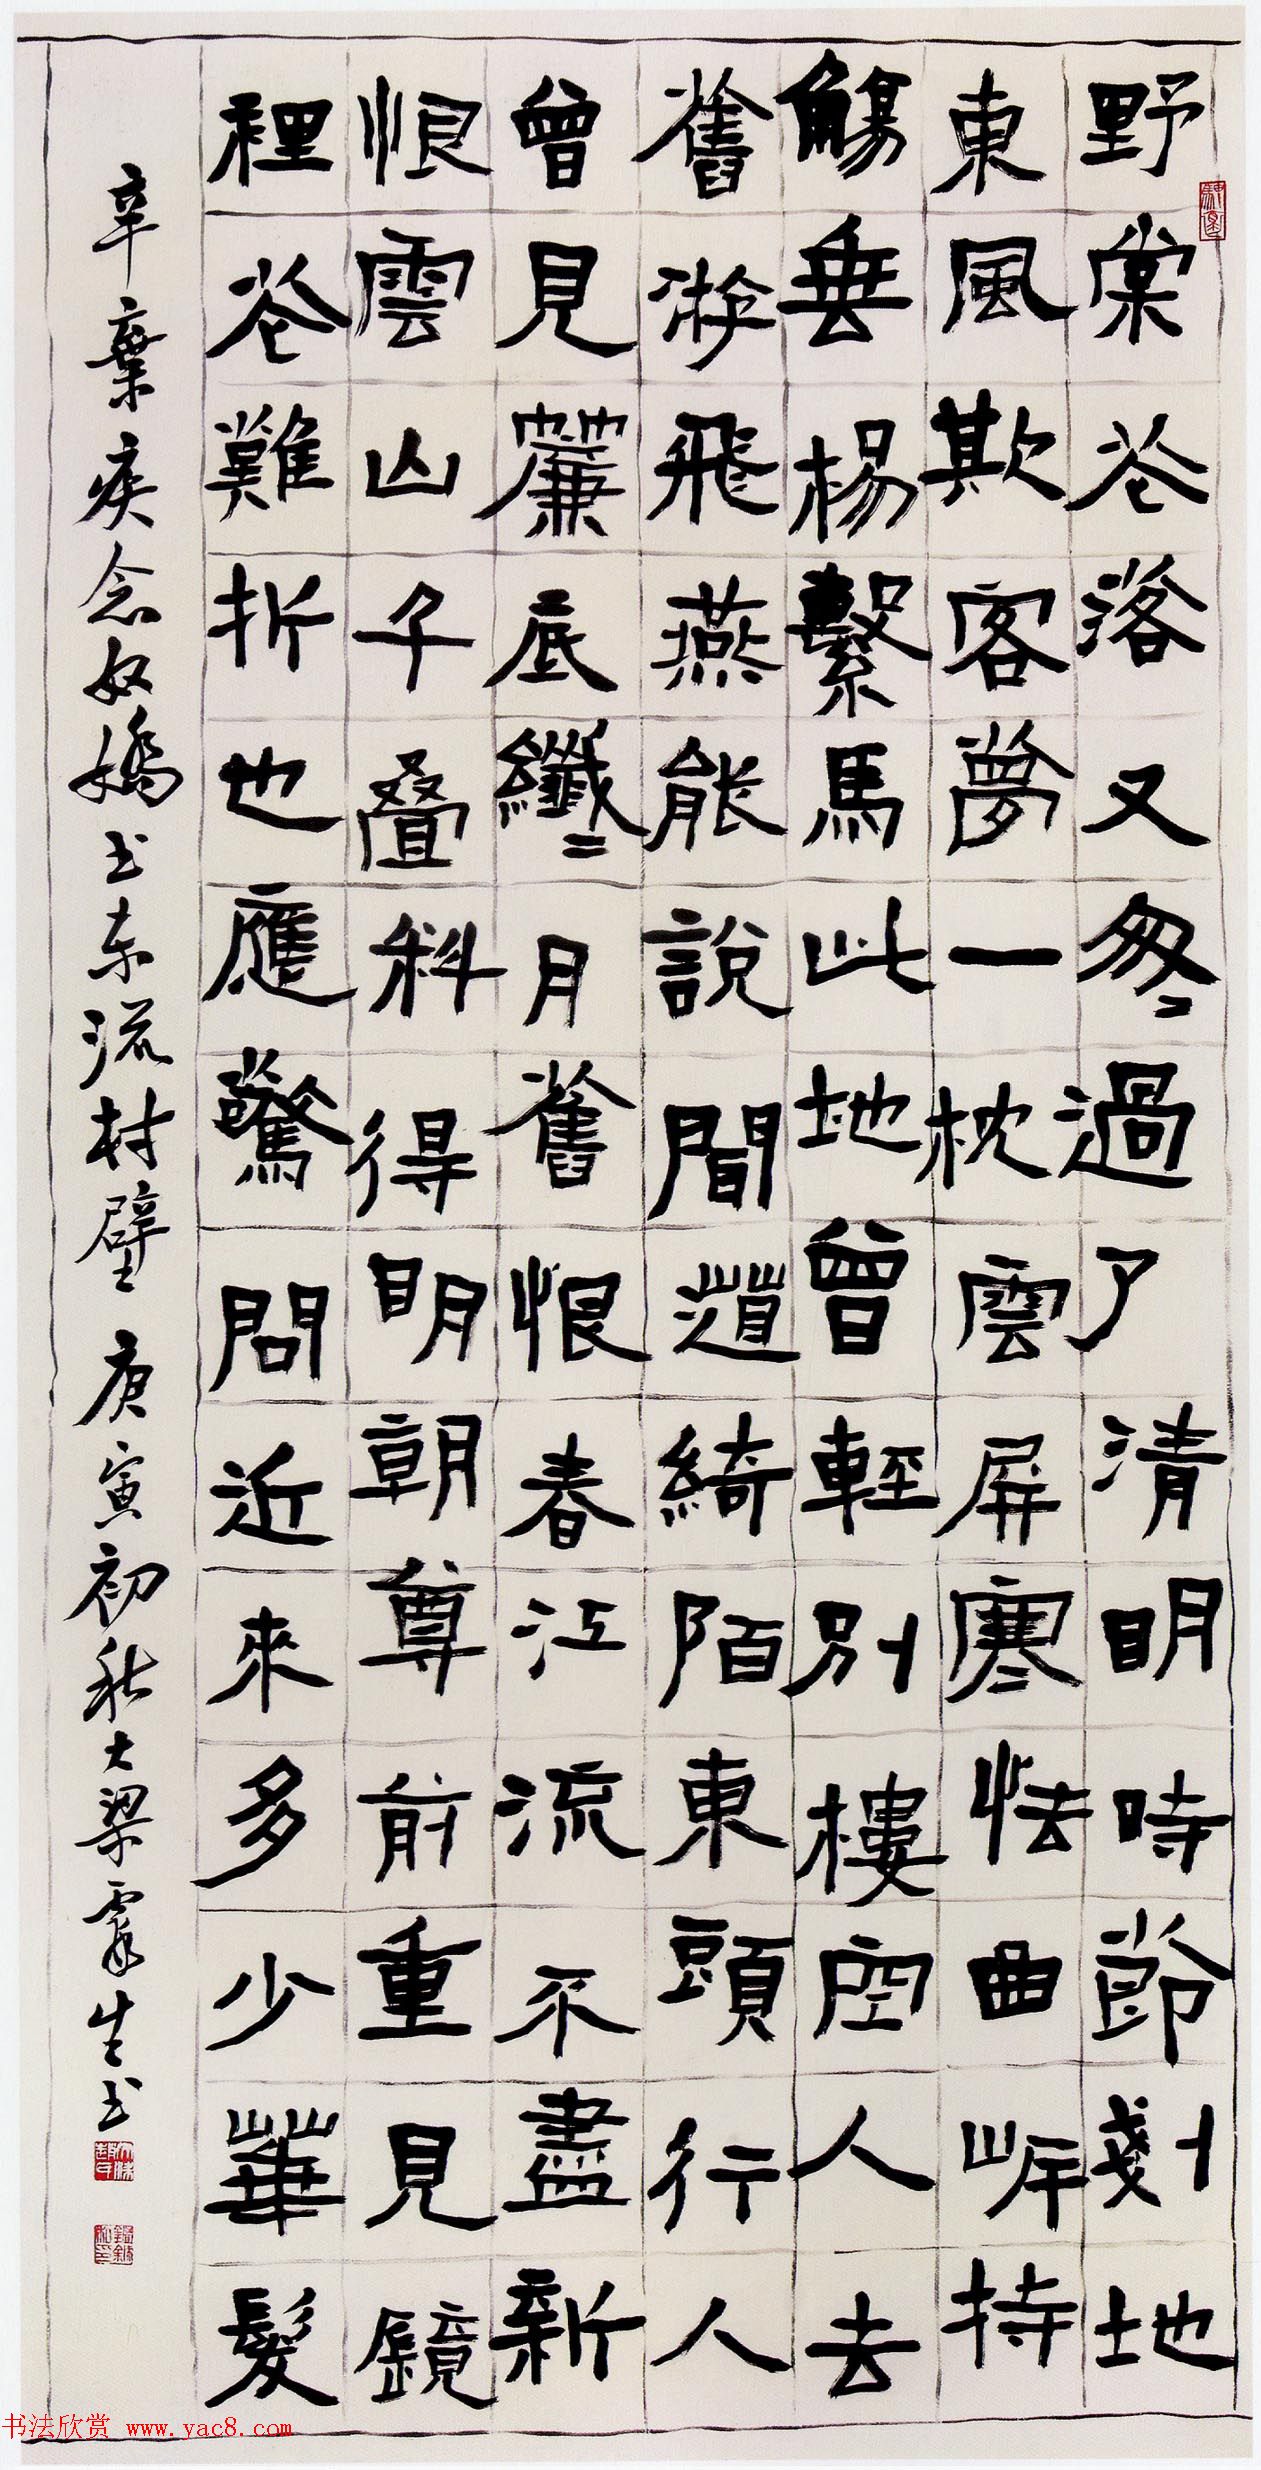 野棠花落又匆匆過了清明時節剗地
東風欺客夢一枕雲屏寒怯曲岸持
觴垂楊繫馬此地曾輕別樓空人去
舊游飛燕能說間道綺陌東頭行人
曾見簾底纖纖月舊恨春江流不盡新
恨雲山千叠料得明朝尊前重見鏡
裡花難折也應驚問近來多少華髮
辛棄疾念奴嬌书东流村壁 庚寅初秋大梁生书
书法欣赏 www.yac8.com